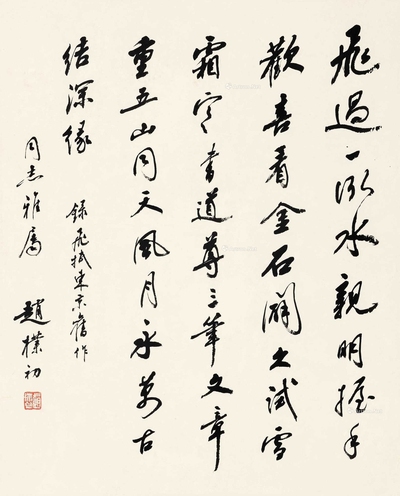 飛過一泓水親朋握手
歡喜看金石試雪
霜寒書道尊三筆文章
重五山同天風月永萬古
結深緣
錄飛抵東京舊作
同志雅屬
趙樸初